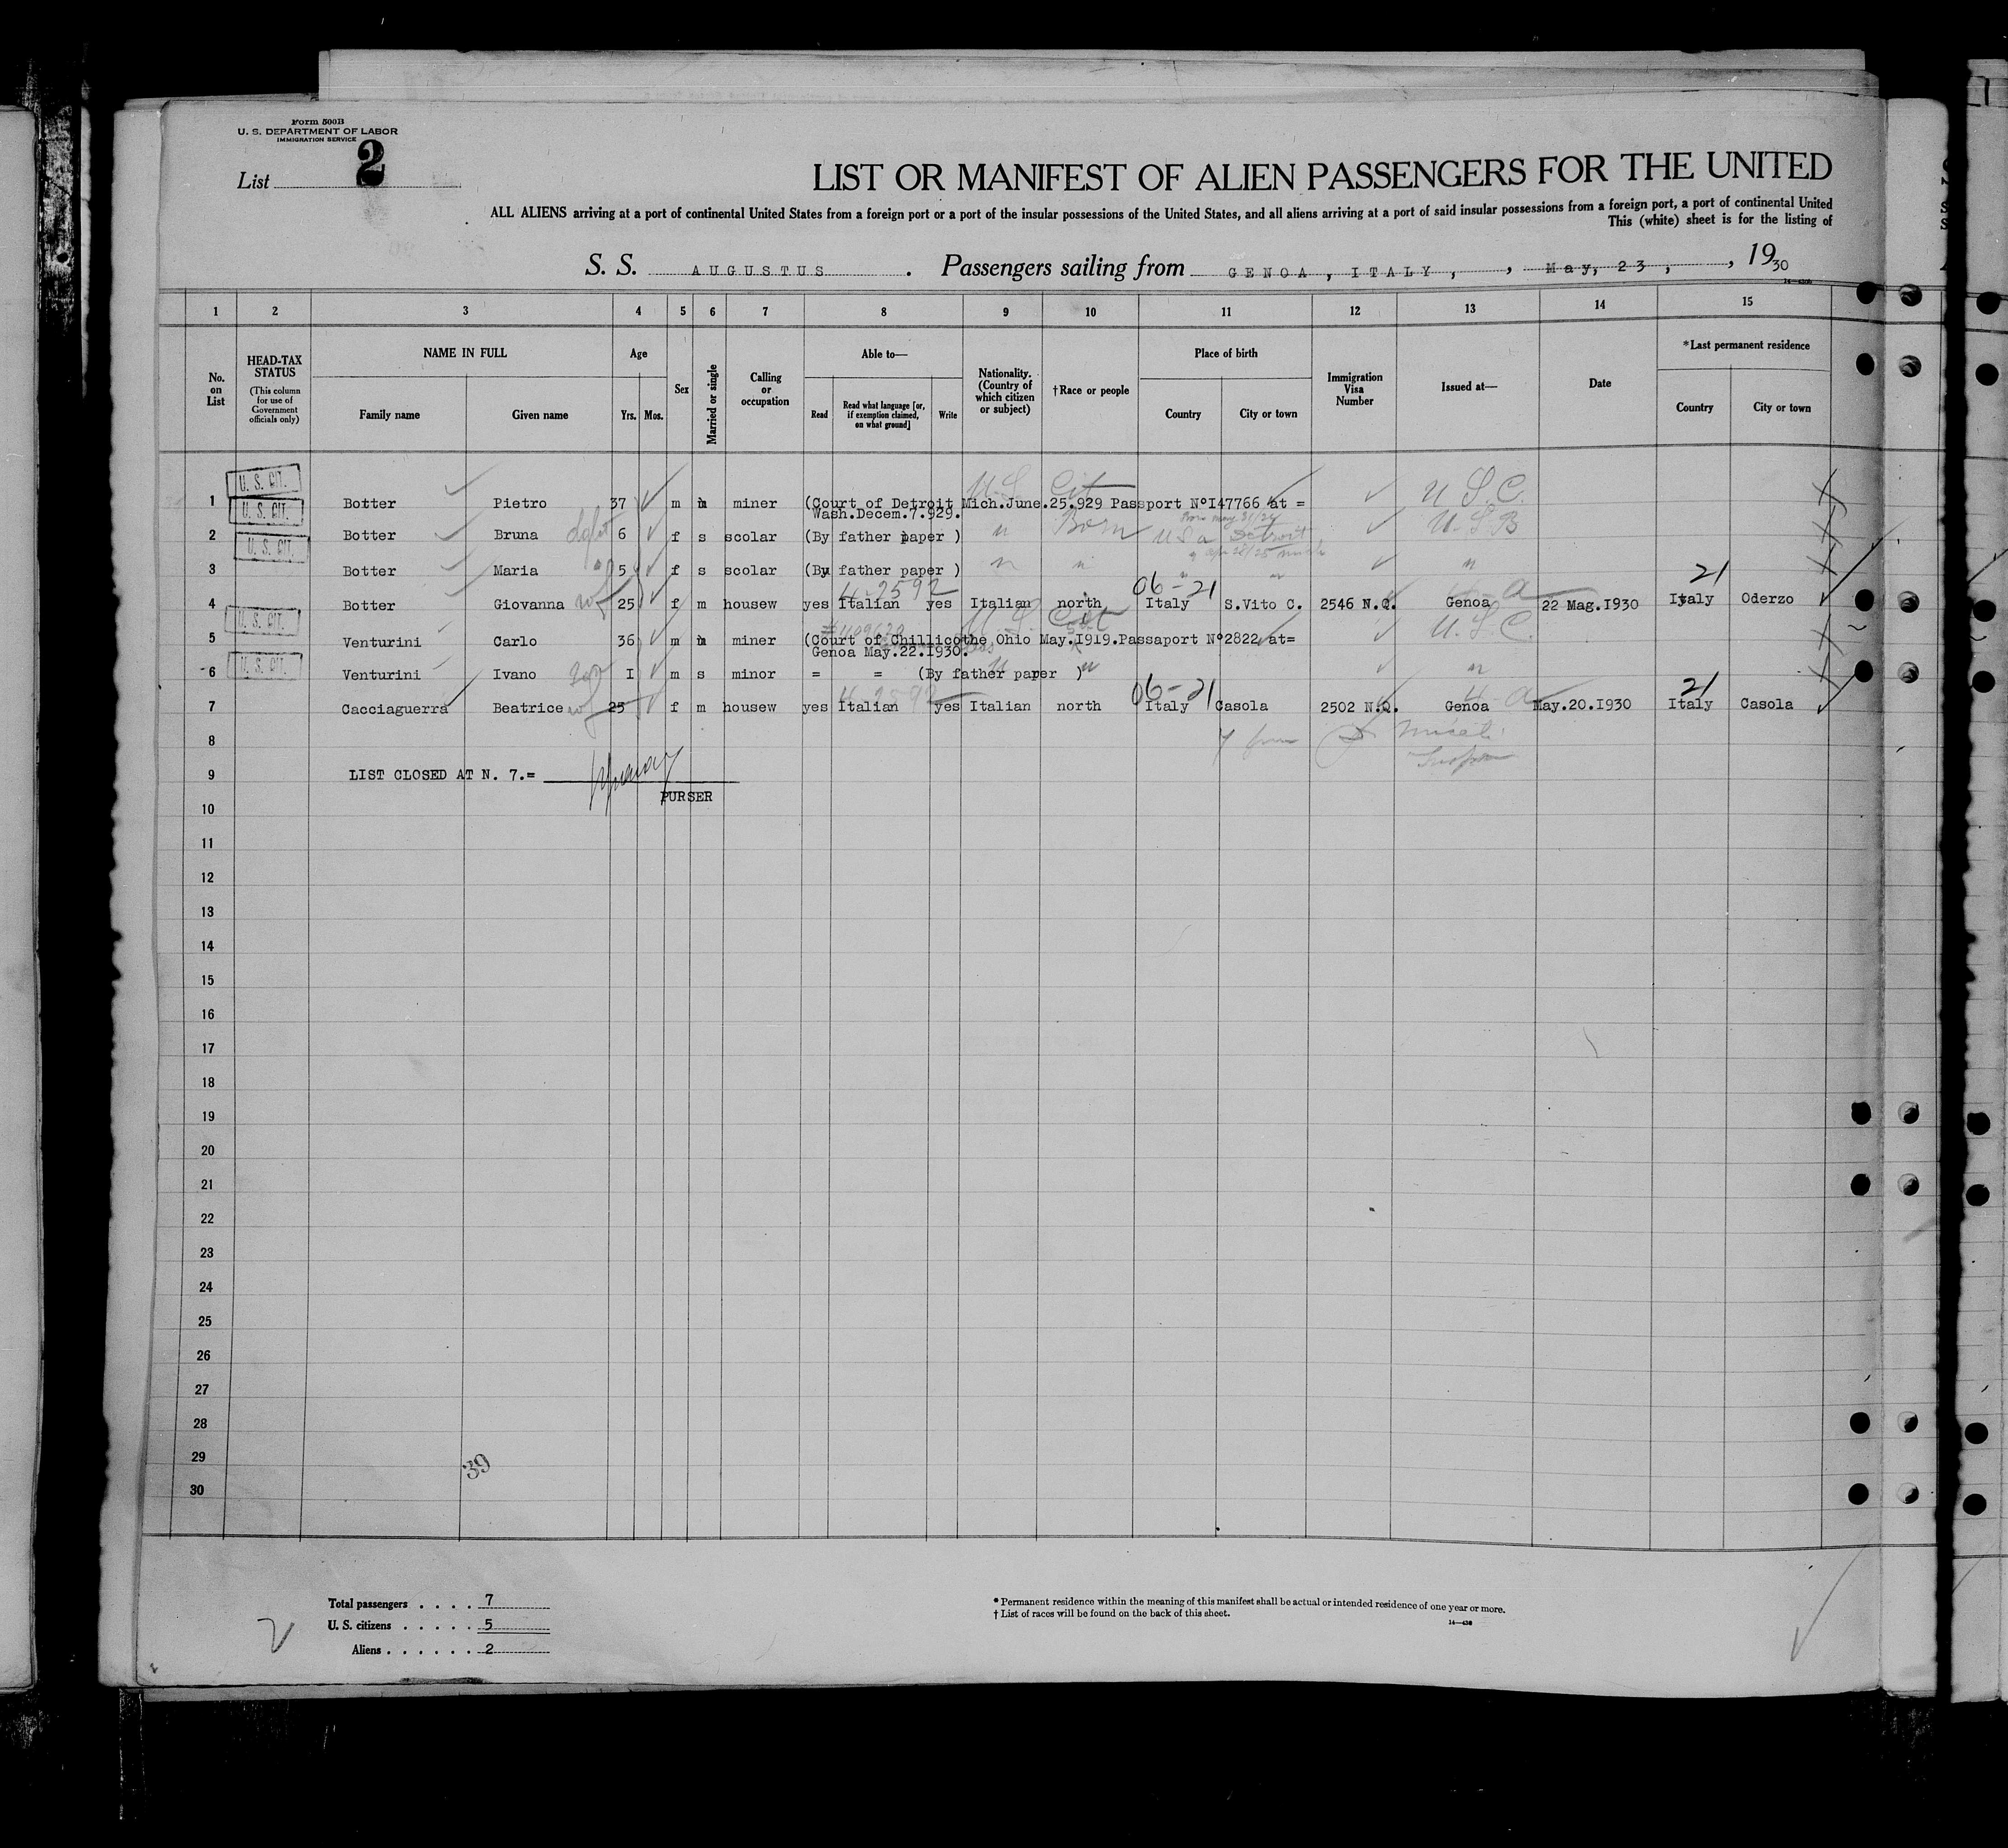 Form 500B
U. S. DEPARTMENT OF LABOR
IMMIGRATION SERVICE
List 2
LIST OR MANIFEST OF ALIEN PASSENGERS FOR THE UNITED
ALL ALIENS arriving at a port of continental United States from a foreign port or a port of the insular possessions of the United States, and all aliens arriving at a port of said insular possessions from a foreign port, a port of continental United
This (white) sheet is for the listing of
S. S. AUGUSTUS . Passengers sailing from GENOA, ITALY, , May, 23, , 1930
1 2 3 4 5 6 7 8 9 10 11 12 13 14 15
No. on List
HEAD-TAX STATUS (This column for use of Government officials only)
NAME IN FULL
Family name Given name
Age
Yrs. Mos.
Sex
Married or single
Calling or occupation
Able to—
Read Read what language [or, if exemption claimed, on what ground] Write
Nationality. (Country of which citizen or subject)
†Race or people
Place of birth
Country City or town
Immigration Visa Number
Issued at—
Date
*Last permanent residence
Country City or town
U. S. CIT. U. S. Cit U S C.
1 Botter Pietro 37 m m miner (Court of Detroit Mich.June.25.929 Passport NºI47766 at =
Wash.Decem.7.929.
U. S. CIT.
2 Botter Bruna 6 f s scolar (By father paper ) " Born U S a Detroit U. S B
U. S. CIT.
3 Botter Maria 5 f s scolar (By father paper ) " " " " "
4-2592 06-21 21
4 Botter Giovanna wf 25 f m housew yes Italian yes Italian north Italy S.Vito C. 2546 N.Q. Genoa 22 Mag.I930 Italy Oderzo
U. S. CIT. U. S. Cit U. S C.
5 Venturini Carlo 36 m m miner (Court of Chillicothe Ohio May.I919.Passaport Nº2822 at=
Genoa May.22.I930.
U. S. CIT.
6 Venturini Ivano I m s minor = = (By father paper ) " "
4-2592 06-21 21
7 Cacciaguerra Beatrice wf 25 f m housew yes Italian yes Italian north Italy Casola 2502 N.Q. Genoa May.20.I930 Italy Casola
8
9 LIST CLOSED AT N. 7.=
PURSER
10
11
12
13
14
15
16
17
18
19
20
21
22
23
24
25
26
27
28
29
39
30
Total passengers . . . . 7
U. S. citizens . . . . . 5
Aliens . . . . . . 2
* Permanent residence within the meaning of this manifest shall be actual or intended residence of one year or more.
† List of races will be found on the back of this sheet.